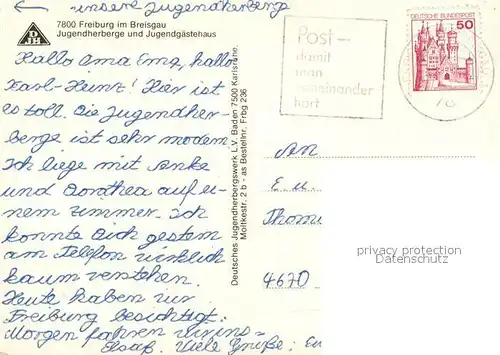 ← unsere Jugendherberge
7800 Freiburg im Breisgau
Jugendherberge und Jugendgästehaus
DJH
Hallo Oma Erna, hallo
Karl-Heinz! Hier ist
es toll. Die Jugendher-
berge ist sehr modern
Ich liege mit Anke
und Dorothea auf ei-
nem Zimmer. Ich
konnte Dich gestern
am Telefon wirklich
kaum verstehen.
Heute haben wir
Freiburg besichtigt.
Morgen fahren wir ins
Elsaß. Viele Grüße: Eu
Deutsches Jugendherbergswerk L.V. Baden 7500 Karlsruhe,
Moltkestr. 2 b - as Bestellnr. Frbg 236
Post –
damit
man
voneinander
hört
DEUTSCHE BUNDESPOST
50
An
E. u.
Thom
4670
privacy protection
Datenschutz